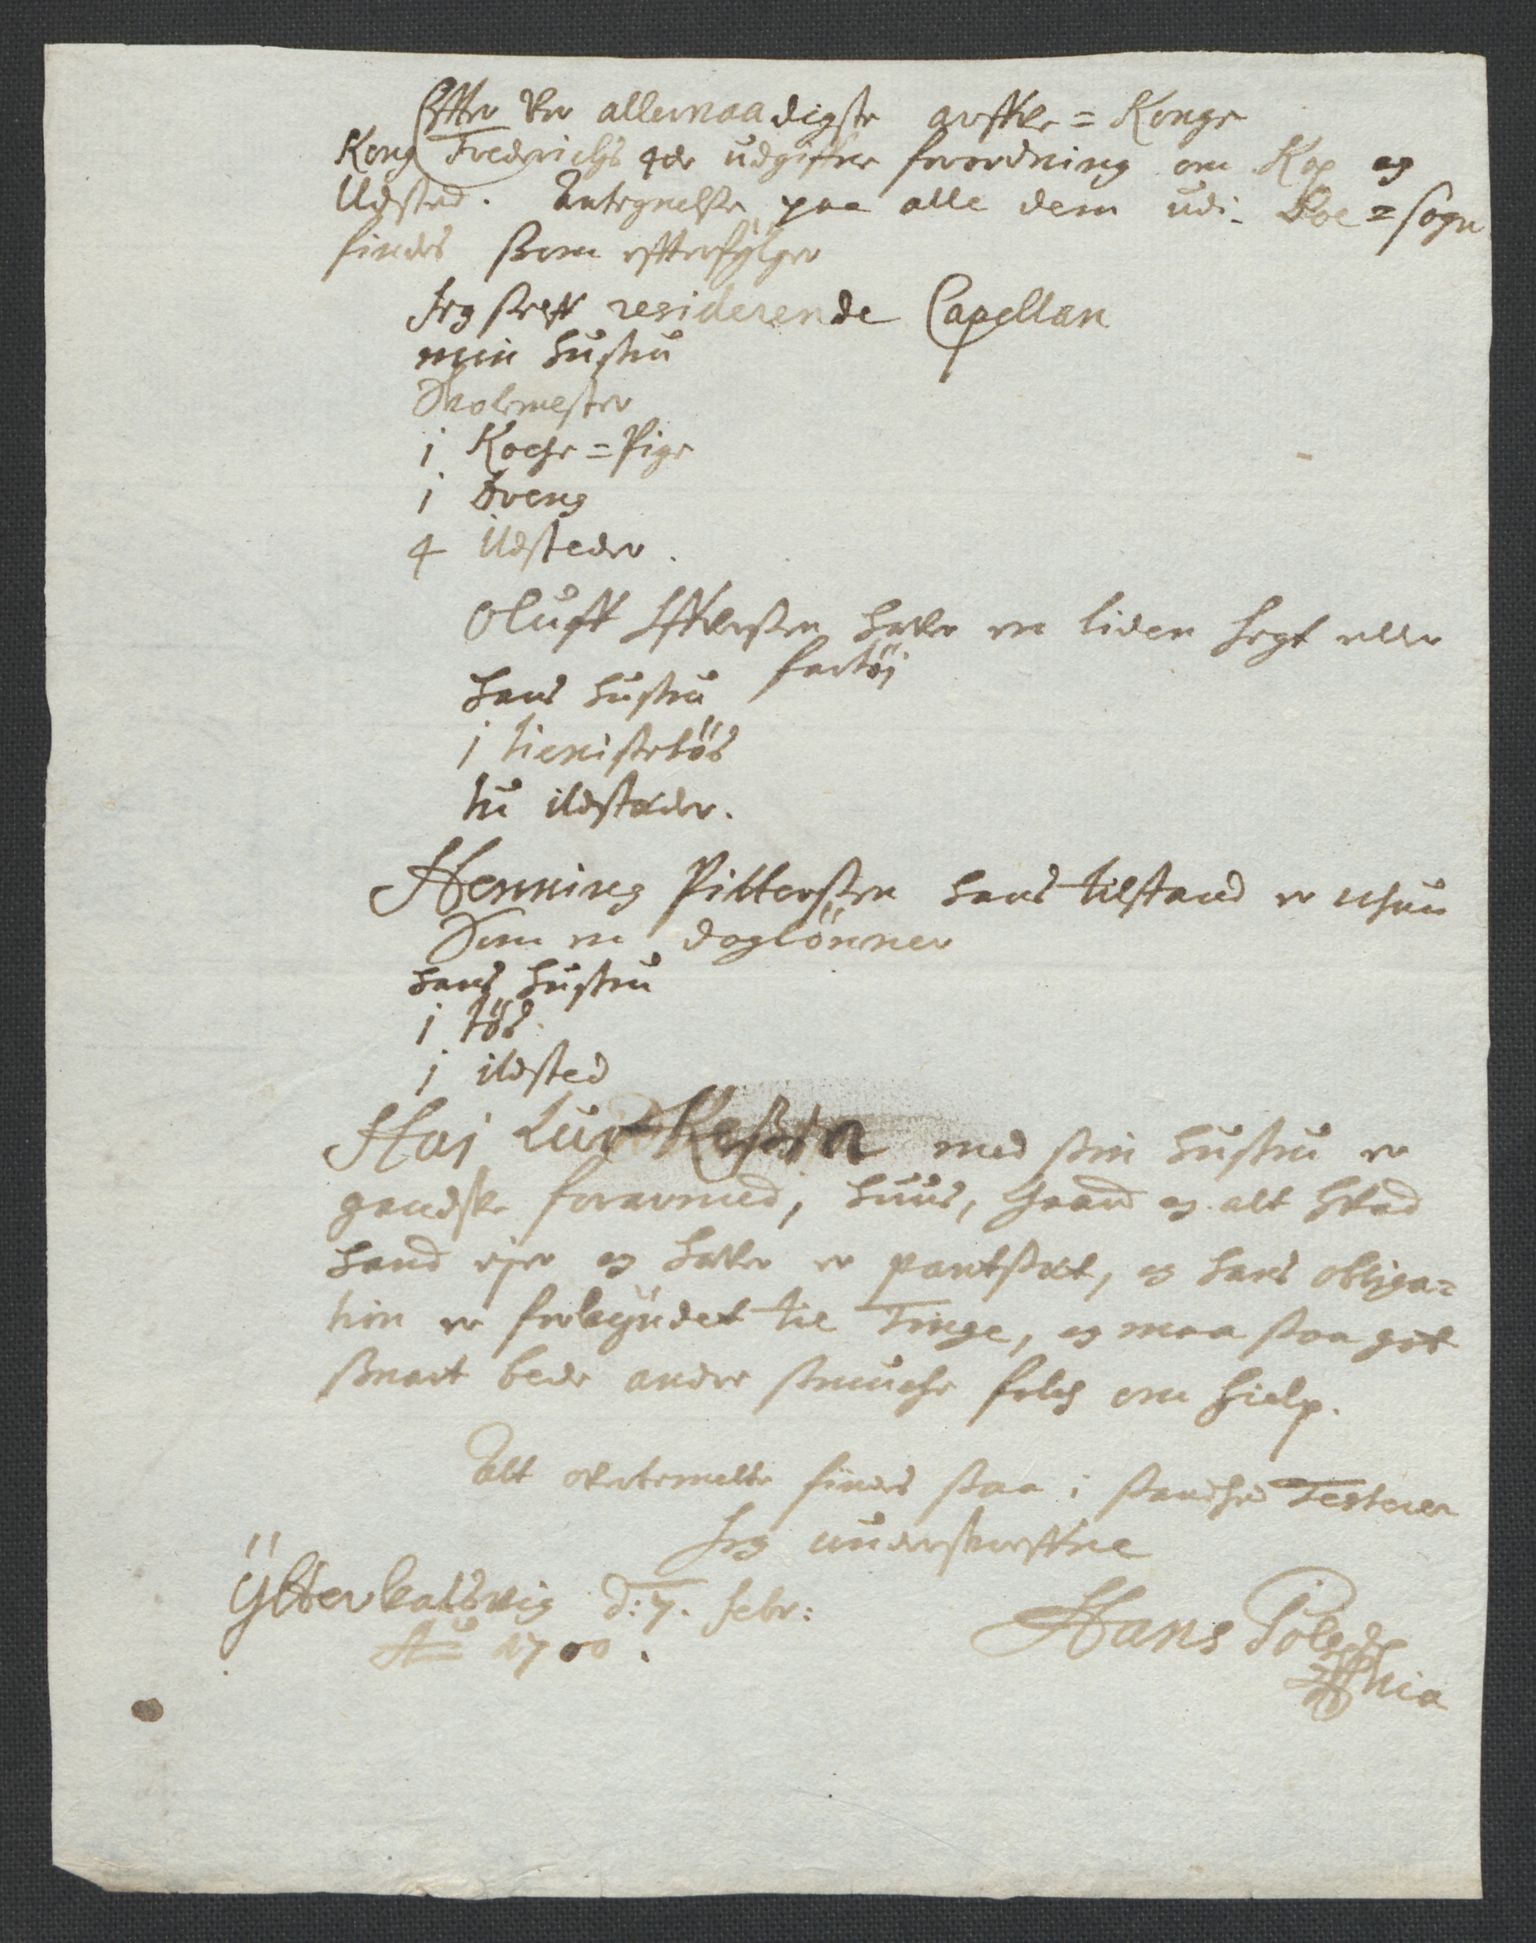 Efter vor allernaadigste arffve = Konge
Kong Friderichs 4de udgifne forordning om Kop og
Ildsted. Antegnelse paa alle dem udi Boe = sogn
findes som efterfølger
Jeg self residerende Capellan
min hustru
Skolemester
1 Kocke = Pige
1 Dreng
4 Ildsteder.
Oluff hafver en liden Jegt eller
fartöj
hans hustru
1 tieniste tös
tu ildstæder.
Henning Pittersen hans tilstand er ichun
Som en daglönner
hans hustru
1 tös.
1 ildsted
med sin hustru er
gandske forarmed, huus, gaard og alt hvad
hand ejer og hafver er pantsæt, og hans obliga=
tion er forkyndet til Tinge, og maa saa got
snart bede andre smucke folck om hielp.
Alt ovenmelte findes saa i sandhed Testerer
Jeg underskrefne
d: 7. febr:
Ao 1700.
Hans